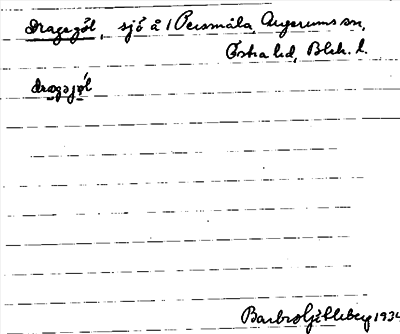 Dragegöl, sjö å 1 Persmåla, Augerums sn,
Östra hd, Blek. l.
dragəjøl
Barbro Ljübleberg 1934